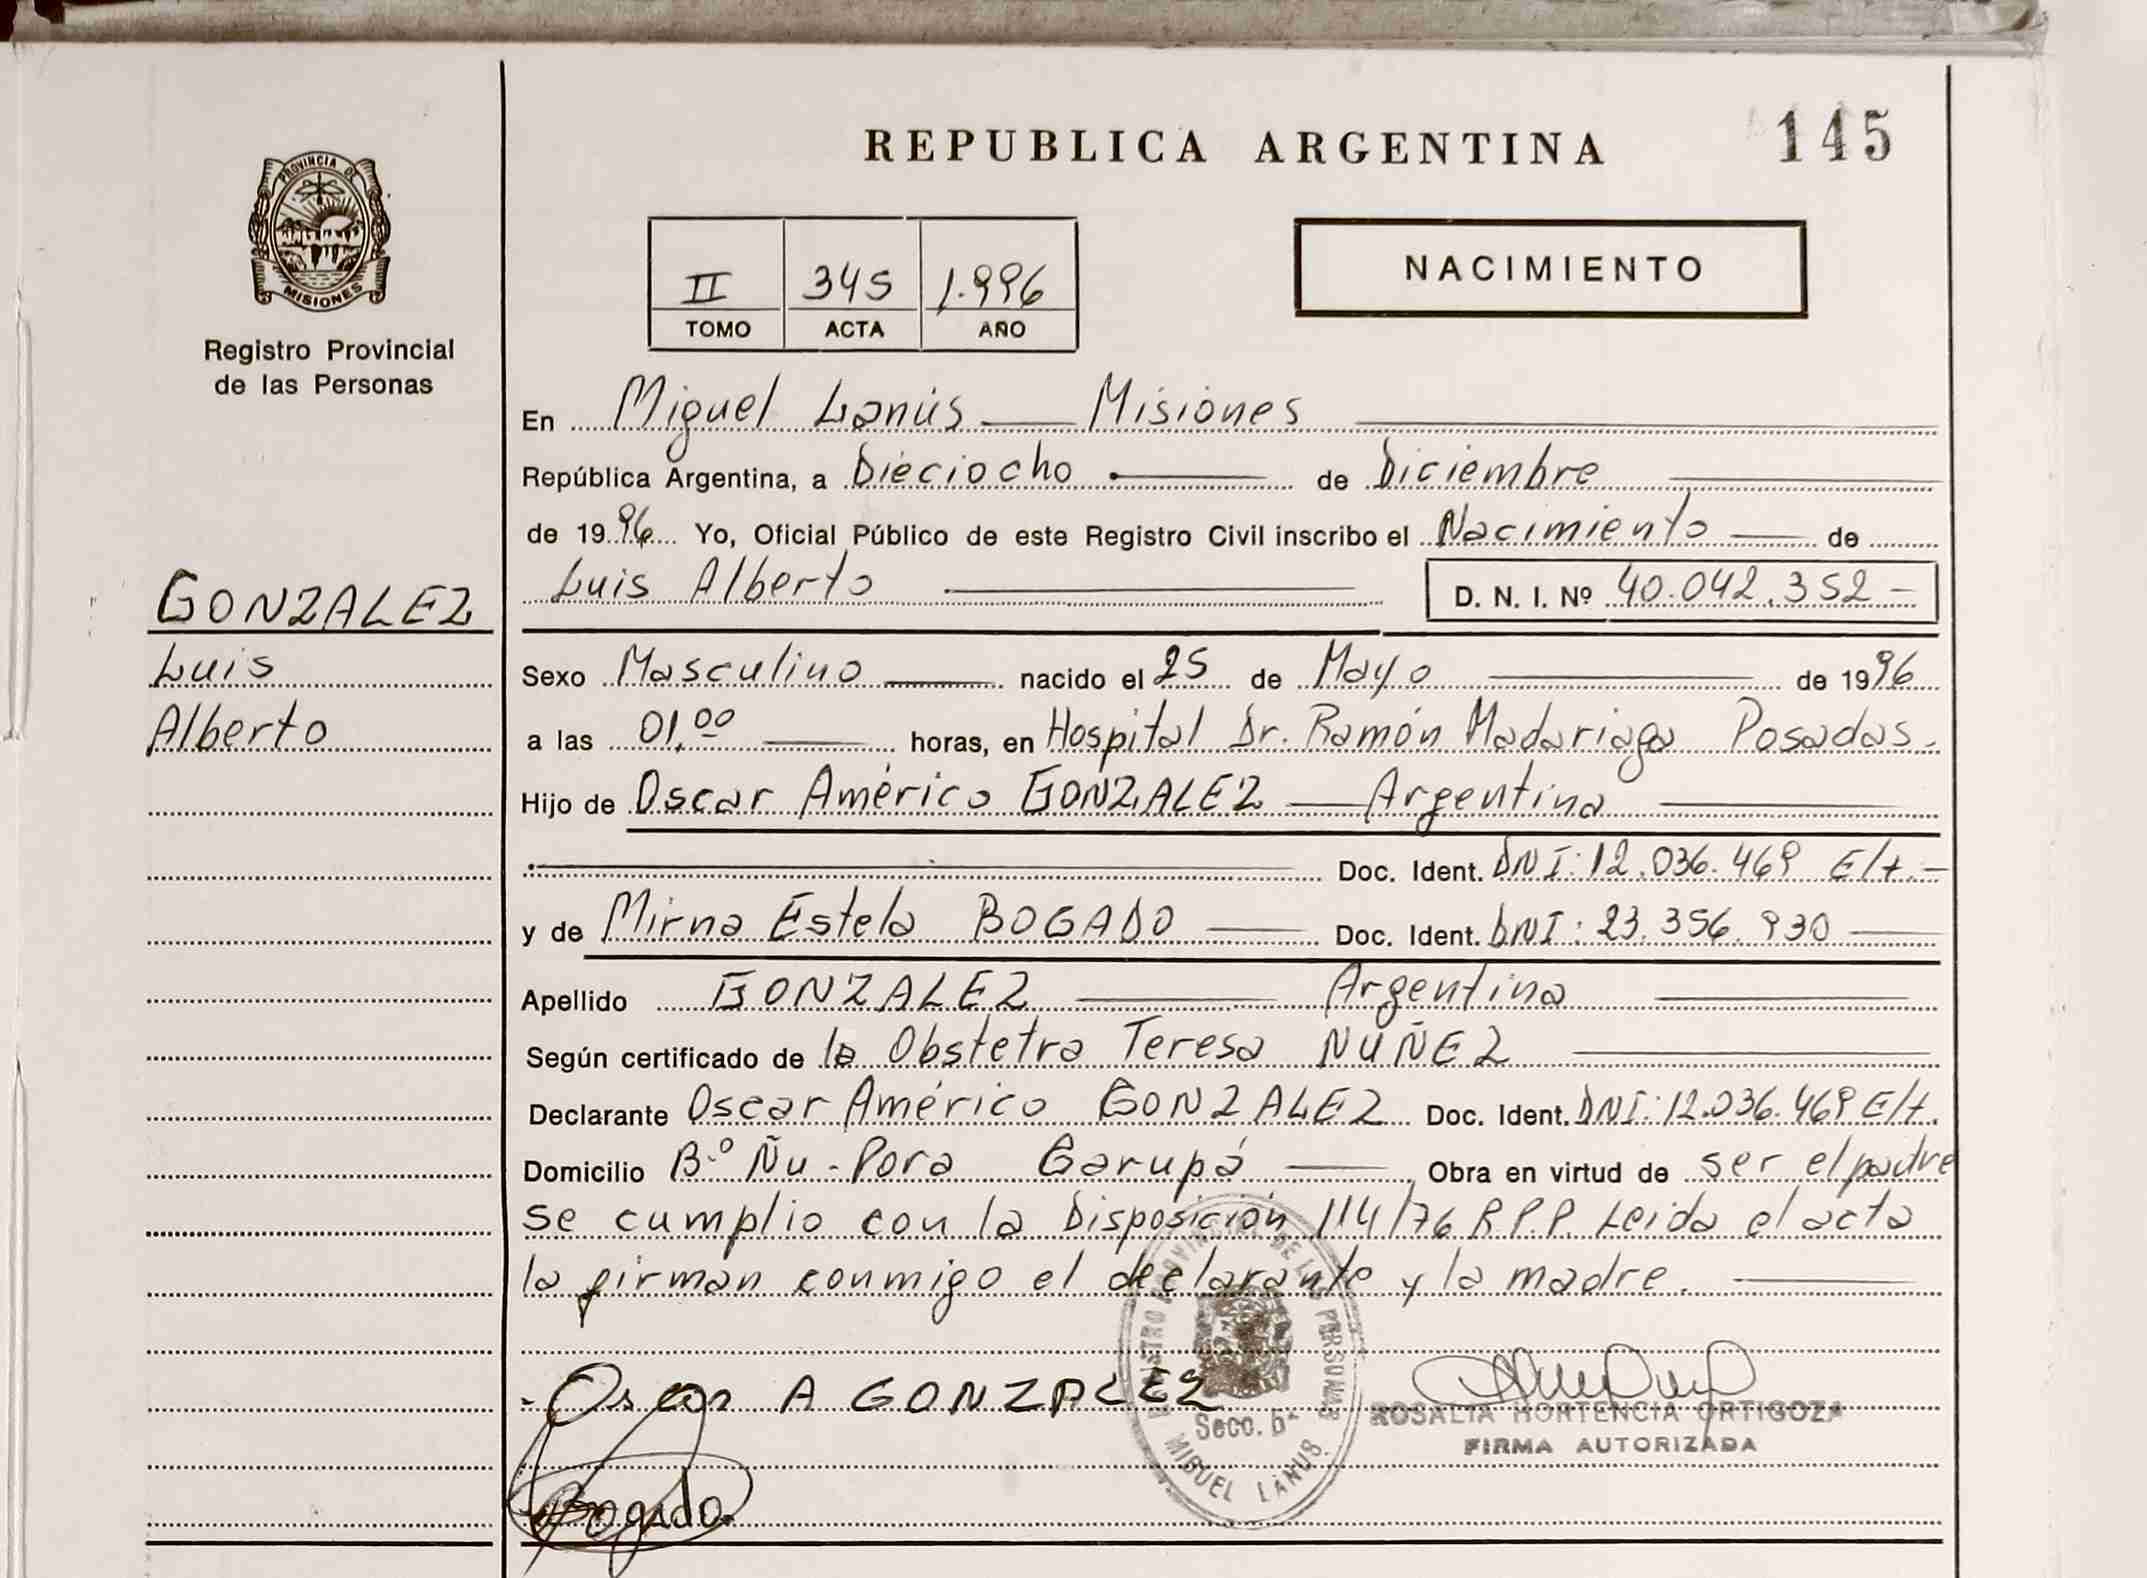 REPUBLICA ARGENTINA
145
PROVINCIA DE
MISIONES
Registro Provincial
de las Personas
II 345 1.996
TOMO ACTA AÑO
NACIMIENTO
GONZALEZ
Luis
Alberto
En Miguel Lanús — Misiones
República Argentina, a Dieciocho de Diciembre
de 1996 Yo, Oficial Público de este Registro Civil inscribo el Nacimiento — de
Luis Alberto D. N. I. Nº 40.042.352 -
Sexo Masculino — nacido el 25 de Mayo — de 1996
a las 01,00 — horas, en Hospital Dr. Ramón Madariaga Posadas.
Hijo de Oscar Américo GONZALEZ — Argentina
Doc. Ident. DNI: 12.036.469 E/t.-
y de Mirna Estela BOGADO — Doc. Ident. DNI: 23.356.930
Apellido GONZALEZ — Argentina
Según certificado de la Obstetra Teresa NUÑEZ
Declarante Oscar Américo GONZALEZ Doc. Ident. DNI: 12.036.469 E/t.
Domicilio B.º Ñu-Pora Garupá — Obra en virtud de ser el padre
se cumplio con la Disposición 114/76 R.P.P. Leida el acta
la firman conmigo el declarante y la madre.
Oscar A GONZALEZ
REGISTRO PROVINCIAL DE LAS PERSONAS
Secc. 6ª
MIGUEL LANUS
ROSALIA HORTENCIA ORTIGOZA
FIRMA AUTORIZADA
Bogado